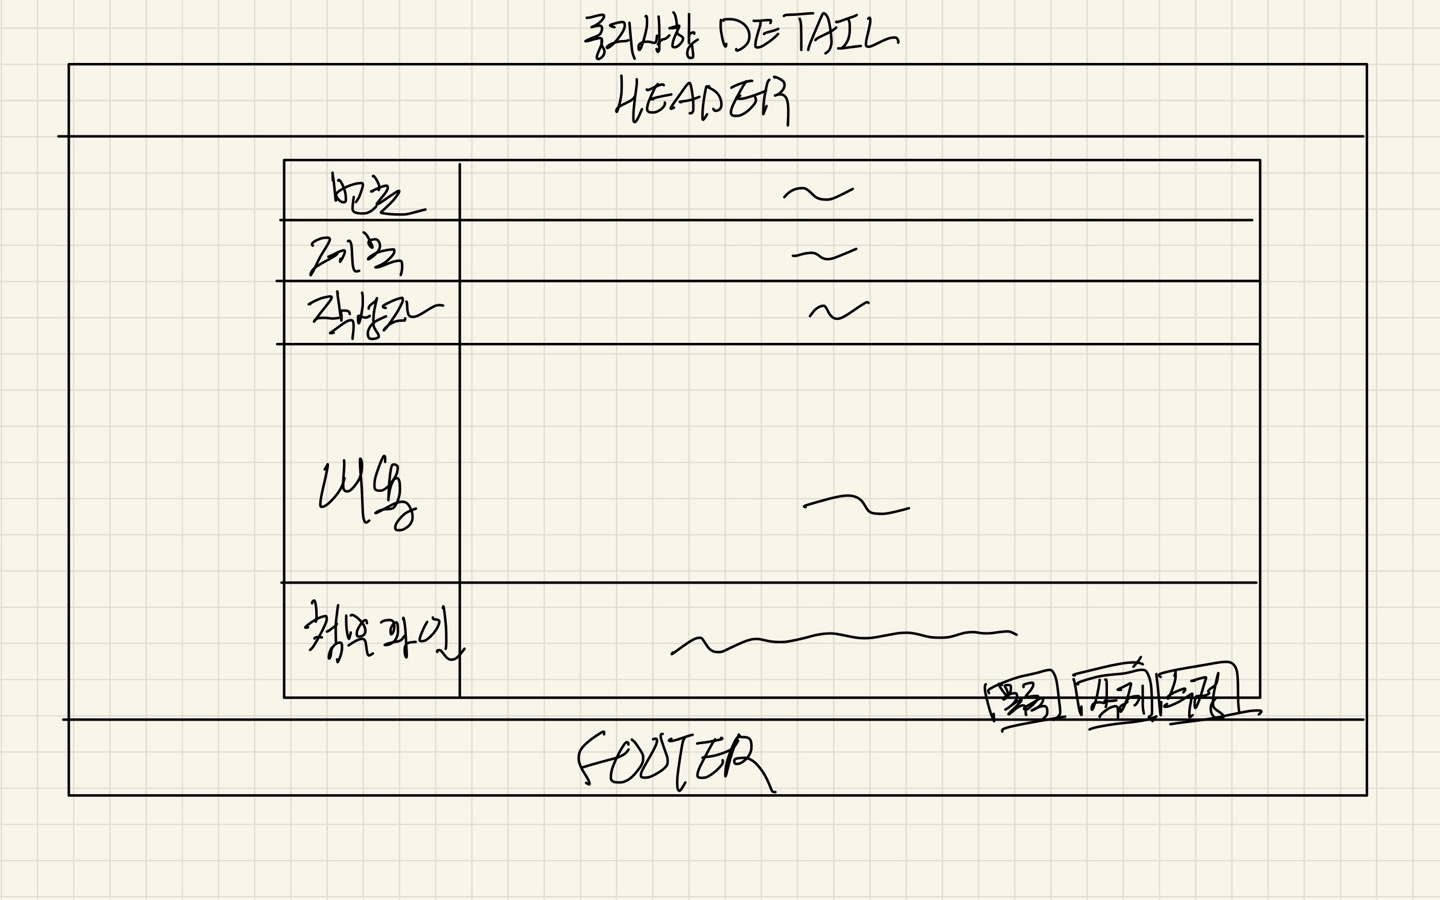 공지사항 DETAIL
HEADER
번호
제목
작성자
내용
첨부파일
목록 삭제 수정
FOOTER